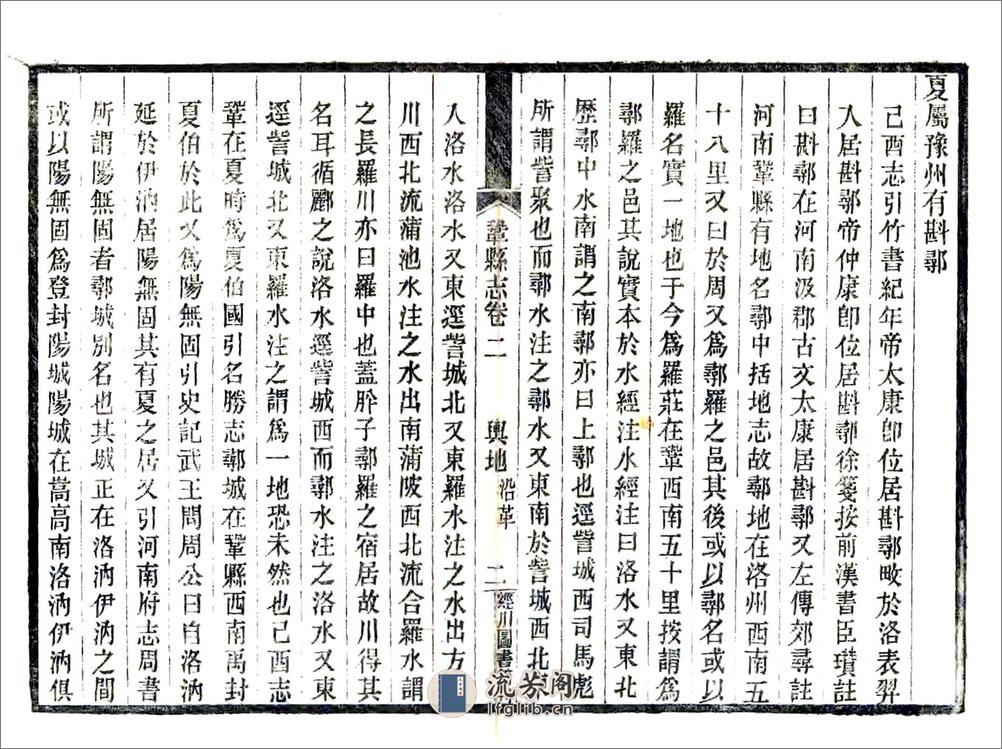 夏屬豫州有斟鄩
己酉志引竹書紀年帝太康卽位居斟鄩畋於洛表羿
入居斟鄩帝仲康卽位居斟鄩徐箋按前漢書臣瓚註
曰斟鄩在河南汲郡古文太康居斟鄩又左傳郊尋註
河南鞏縣有地名鄩中括地志故鄩地在洛州西南五
十八里又曰於周又爲鄩羅之邑其後或以鄩名或以
羅名實一地也于今爲羅莊在鞏西南五十里按謂爲
鄩羅之邑其說實本於水經注水經注曰洛水又東北
歷鄩中水南謂之南鄩亦曰上鄩也逕訾城西司馬彪
所謂訾聚也而鄩水注之鄩水又東南於訾城西北
鞏縣志卷二 輿地 沿革 二 經川圖書
入洛水洛水又東逕訾城北又東羅水注之水出方
川西北流蒲池水注之水出南蒲陂西北流合羅水謂
之長羅川亦曰羅中也蓋肸子鄩羅之宿居故川得其
名耳循酈之說洛水逕訾城西而鄩水注之洛水又東
逕訾城北又東羅水注之謂爲一地恐未然也己酉志
鞏在夏時爲夏伯國引名勝志鄩城在鞏縣西南禹封
夏伯於此又爲陽無固引史記武王問周公曰自洛汭
延於伊汭居陽無固其有夏之居又引河南府志周書
所謂陽無固者鄩城別名也其城正在洛汭伊汭之間
或以陽無固爲登封陽城陽城在嵩高南洛汭伊汭俱
流芳阁
lfglib.cn